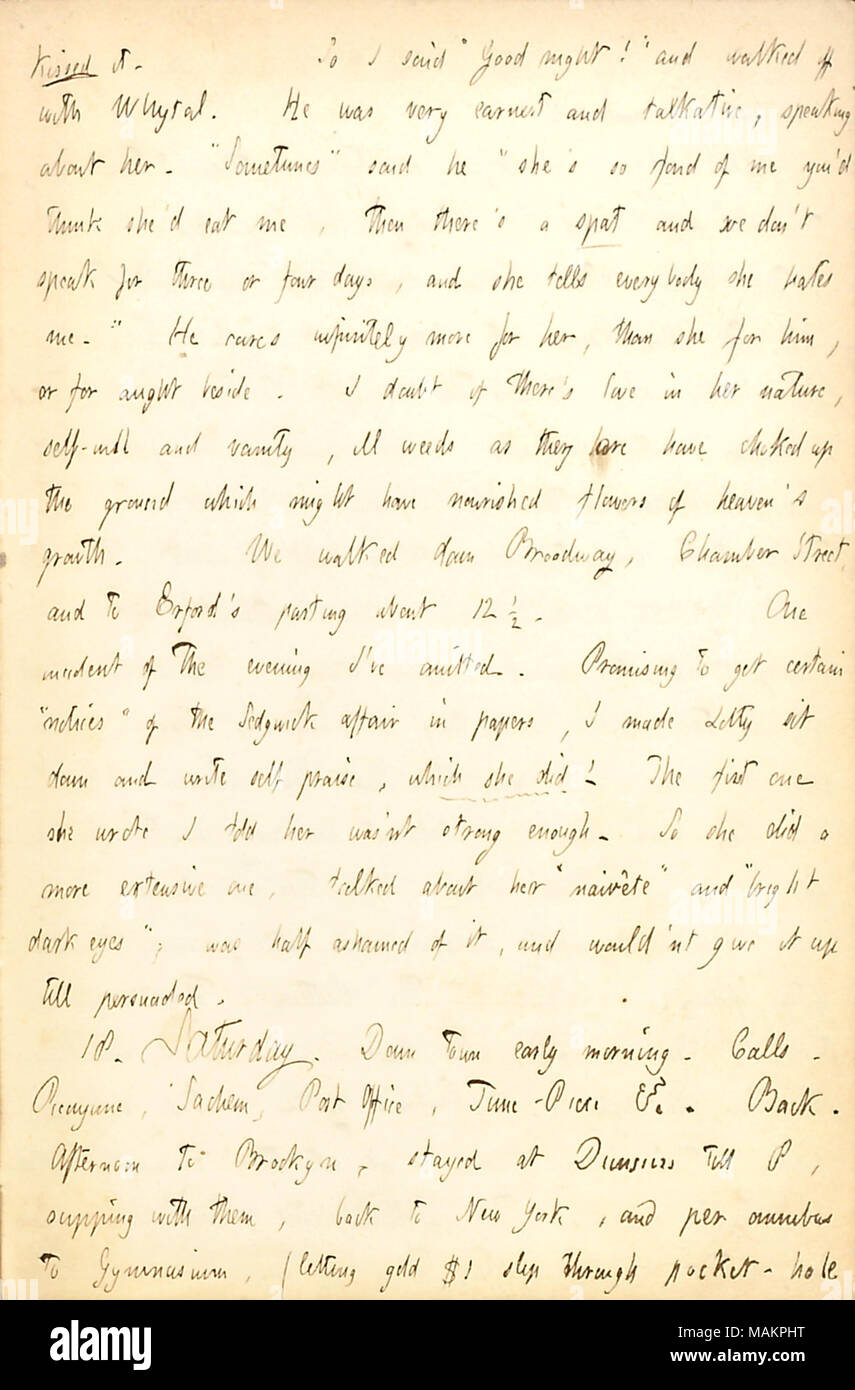 kissed it. So I said "Good night!" and walked off
with Whytal. He was very earnest and talkative, speaking
about her. "Sometimes" said he "she's so fond of me you'd
think she'd eat me, then there's a spat and we don't
speak for three or four days, and she tells everybody she hates
me." He cares infinitely more for her, than she for him,
or for aught beside. I doubt if there's love in her nature,
self-will and vanity, ill weeds as they are have choked up
the ground which might have nourished flowers of heaven's
growth. We walked down Broadway, Chamber Street,
and to Erford's parting about 12 ½. One
incident of the evening I've omitted. Promising to get certain
"notices" of the Sedgwick affair in papers, I made Lotty sit
down and write self praise, which she did! The first one
she wrote I told her wasn't strong enough. So she did a
more extensive one, talked about her "naivête" and "bright
dark eyes"; was half ashamed of it, and would'nt give it up
till persuaded.
18. Saturday. Down town early morning. Calls.
Picayune, Sachem, Post Office, Time-Piece &c. Back.
Afternoon to Brookyn, stayed at Dunsiers till 8,
supping with them, back to New York, and per omnibus
to Gymnasium, (letting gold $1 slip through pocket-hole
alamy
Image ID: MAKPHT
www.alamy.com